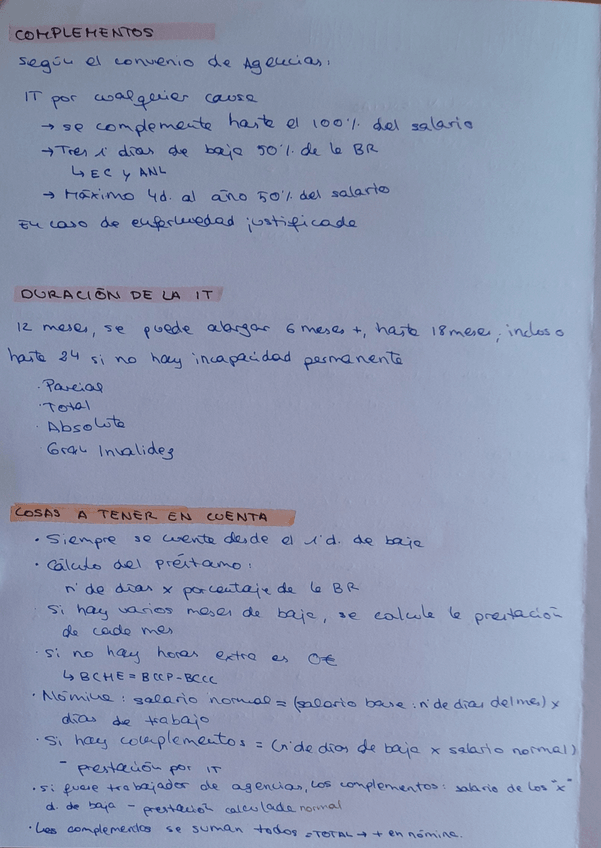 COMPLEMENTOS
según el convenio de Agencias:
IT por cualquier causa
→ se complementa hasta el 100% del salario
→ Tres 1' días de baja 50% de la BR
↳ EC y ANL
→ Máximo 4d. al año 50% del salario
En caso de enfermedad justificada
DURACIÓN DE LA IT
12 meses, se puede alargar 6 meses +, hasta 18 meses, incluso
hasta 24 si no hay incapacidad permanente
· Parcial
· Total
· Absoluta
· Gran Invalidez
COSAS A TENER EN CUENTA
· Siempre se cuenta desde el 1'd. de baja
· Cálculo del préstamo:
n' de días x porcentaje de la BR
· Si hay varios meses de baja, se calcula la prestación
de cada mes
· Si no hay horas extra es 0€
↳ BCHE = BCCP - BCCC
· Nómina: salario normal = (salario base : n' de días del mes) x
días de trabajo
· Si hay complementos = (n' de días de baja x salario normal)
- prestación por IT
· si fuese trabajador de agencias, los complementos: salario de los "x"
d. de baja - prestación calculada normal
· Los complementos se suman todos = TOTAL → + en nómina.